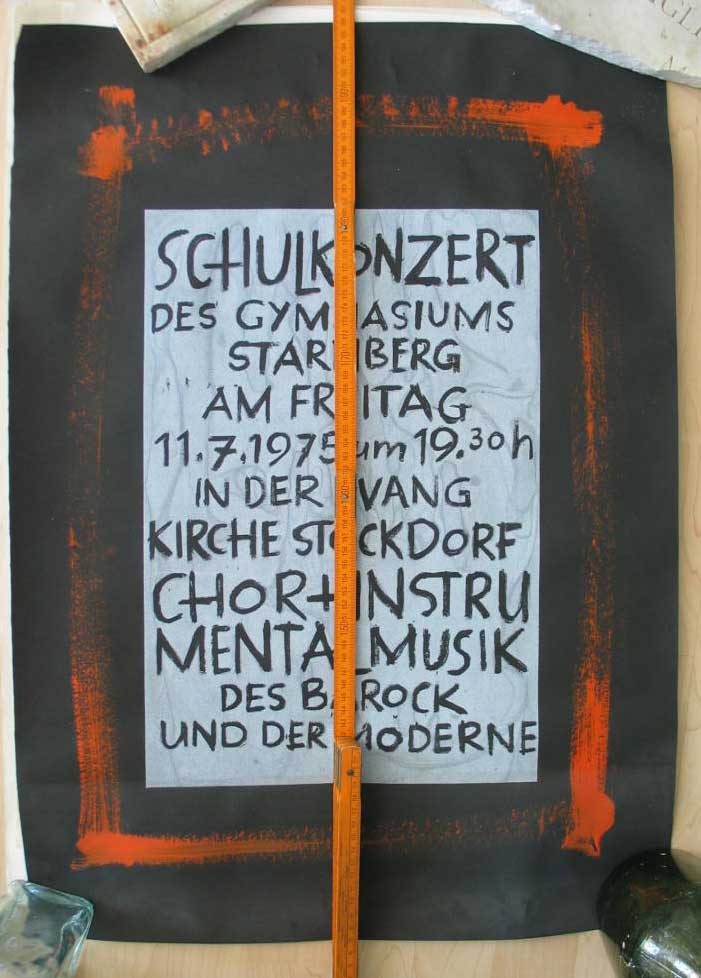 SCHULKONZERT
DES GYMNASIUMS
STARNBERG
AM FREITAG
11.7.1975 um 19.30 h
IN DER EVANG
KIRCHE STOCKDORF
CHOR+INSTRU
MENTALMUSIK
DES BAROCK
UND DER MODERNE